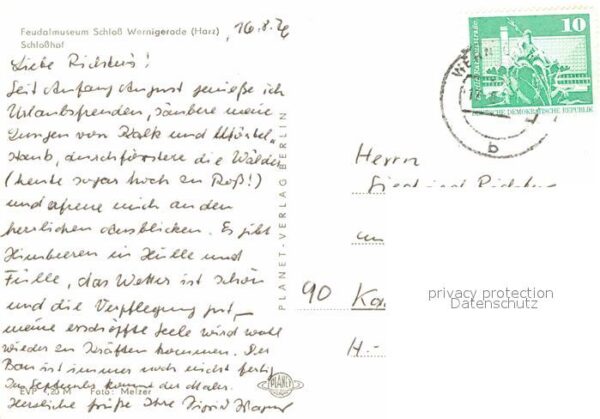 Feudalmuseum Schloß Wernigerode (Harz)
Schloßhof
16.8.76
Liebe Richters!
Seit Anfang August genieße ich
Urlaubsfreuden, säubere meine
Lungen von Kalk und Mörtel-
staub, durchforstere die Wälder
(heute sogar hoch zu Roß!)
und erfreue mich an den
herrlichen Ausblicken. Es gibt
Himbeeren in Hülle und
Fülle, das Wetter ist schön
und die Verpflegung gut,
meine erschöpfte Seele wird wohl
wieder zu Kräften kommen. Der
Bau ist immer noch nicht fertig
Im September kommt der Maler.
Herzliche Grüße Ihre
EVP -,20 M Foto: Melzer
PLANET-VERLAG BERLIN
PLANET
10
DEUTSCHE DEMOKRATISCHE REPUBLIK
b
Herrn
90
H.-
privacy protection
Datenschutz